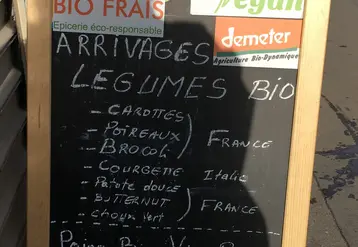 BIO FRAIS
Epicerie éco-responsable
Vegan
demeter
Agriculture Bio-Dynamique
ARRIVAGES
LEGUMES BIO
- CAROTTES
- POIREAUX
- BROCOLI
FRANCE
- COURGETTE Italie
- Patate douce
- BUTTERNUT
- choux vert
FRANCE